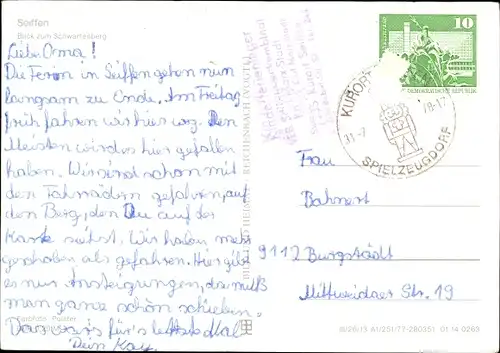 Seiffen
Blick zum Schwartenberg
Liebe Oma!
Die Ferien in Seiffen gehen nun
langsam zu Ende. Am Freitag
früh fahren wir hier weg. Den
Meisten wird es hier gefallen
haben. Wir sind schon mit
den Fahrrädern gefahren, auf
den Berg, den Du auf der
Karte siehst. Wir haben mehr
geschoben als gefahren. Hier gibt
es nur Ansteigungen, da muß
man ganz schön schieben.
Das war's für's letzte Mal
Dein Kay.
10
DEUTSCHE DEMOKRATISCHE REPUBLIK
KURORT
31.-7
78-17
SPIELZEUGDORF
Frau
Bahnert
9112 Burgstädt
Mittweidaer Str. 19
BILD UND HEIMAT REICHENBACH (VOGTL)
01 14 0263